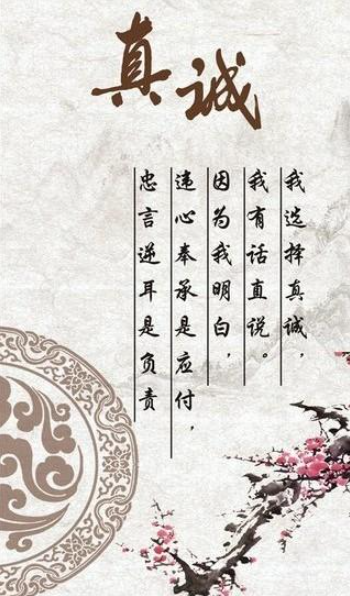 真诚
我选择真诚，
我有话直说。
因为我明白，
违心奉承是应付，
忠言逆耳是负责